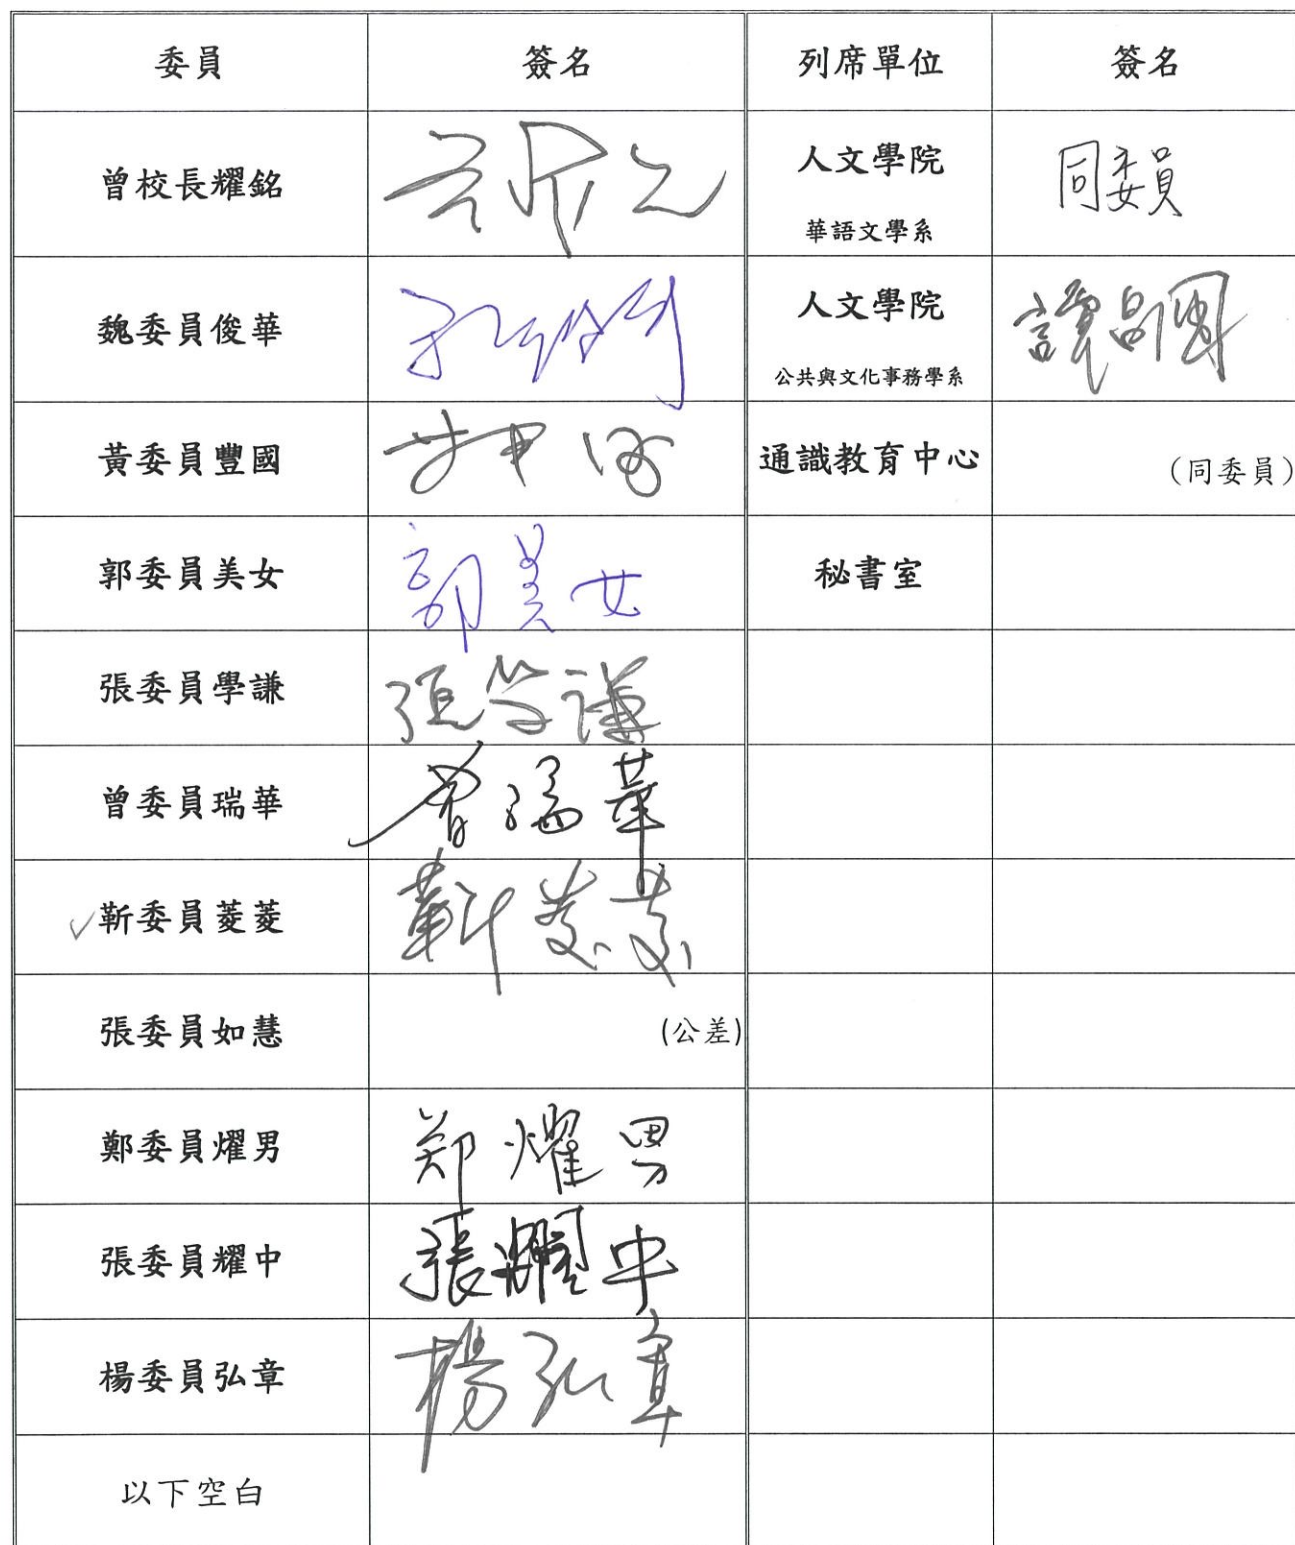 委員 簽名 列席單位 簽名
曾校長耀銘 人文學院 同委員
華語文學系
魏委員俊華 人文學院 譚昌國
公共與文化事務學系
黃委員豐國 通識教育中心 (同委員)
郭委員美女 郭美女 秘書室
張委員學謙 張学謙
曾委員瑞華 曾瑞華
✓靳委員菱菱 靳菱菱
張委員如慧 (公差)
鄭委員燿男 郑燿男
張委員耀中 張耀中
楊委員弘章 楊弘章
以下空白